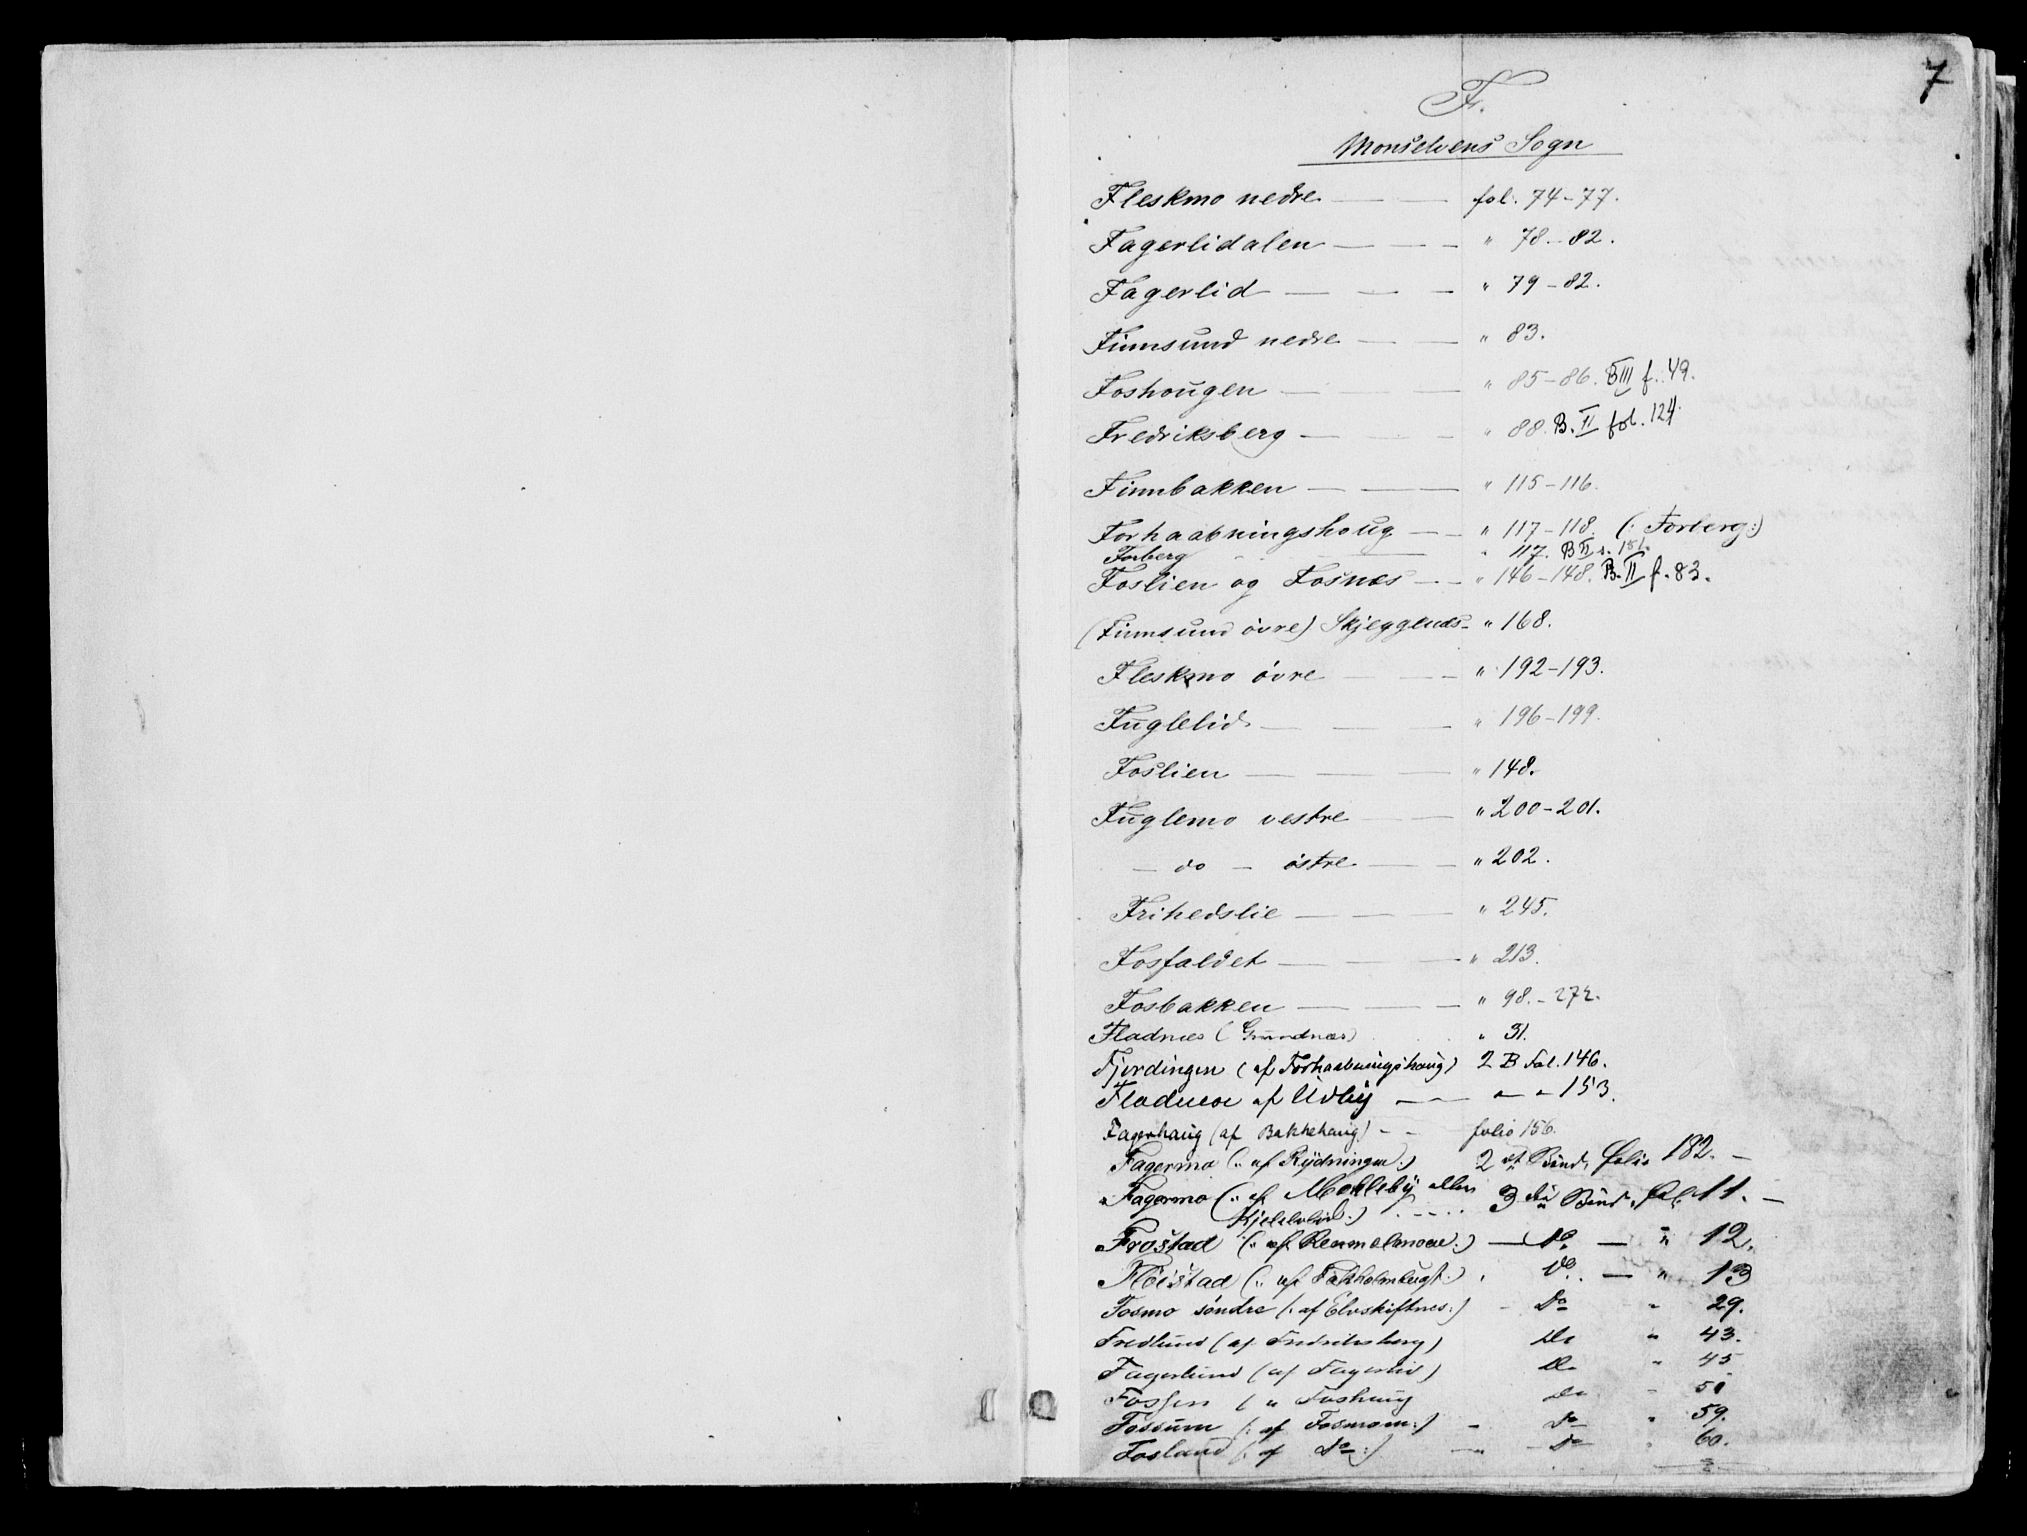 7
F.
Monselvens Sogn
Fleskmo nedre — — fol. 74-77.
Fagerlidalen — — — " 78-82.
Fagerlid — — — " 79-82.
Finnsund nedre — — " 83.
Foshougen — — " 85-86. BIII f. 49.
Fredriksberg — — " 88. B. II fol. 124.
Finnbakken — — " 115-116.
Forhaabningshoug — — " 117-118. (: Forberg:)
Forberg — " 117. B II s. 181.
Foslien og Fosnæs — — " 146-148. B. II f. 83.
(Finnsund övre) Skjeggenæs - " 168.
Fleskmo övre — — " 192-193.
Fuglelid — — " 196-199.
Foslien — — — " 148.
Fuglemo vestre — — " 200-201.
— do — östre — — " 202.
Frihedslie — — — " 245.
Fosfaldet — — — " 213.
Fosbakken — — — " 98. - 272.
Fladnæs (Grundnæs) " 31.
Fjerdingen (af Forhaabningshaug) 2 B Fol. 146.
Fladmoe af Udby — — " - " 153.
Fagerhaug (af Bakkehaug) - - folio 156.
Fagermo (: af Rydningen :) 2det Bind, folio 182. —
Fagermo (: af Mokleby eller 3die Bind, fol. 11. —
Kjelelvlid :) . - - - .
Frostad (: af Rennelmoen :) — Do — " 12.
Flöistad (: af :) . Do . — " 13
Fosmo söndre (: af Elvskiftnes :) - Do " 29.
Fredlund (af Fredriksberg) Do " 43.
Fagerlund (af Fagerlid) Do " 45
Fossen ( " Foshaug Do " 51
Fossum (: af Fosmoen :) - Do " 59.
Fosland (: af Do :) — - Do " 60.